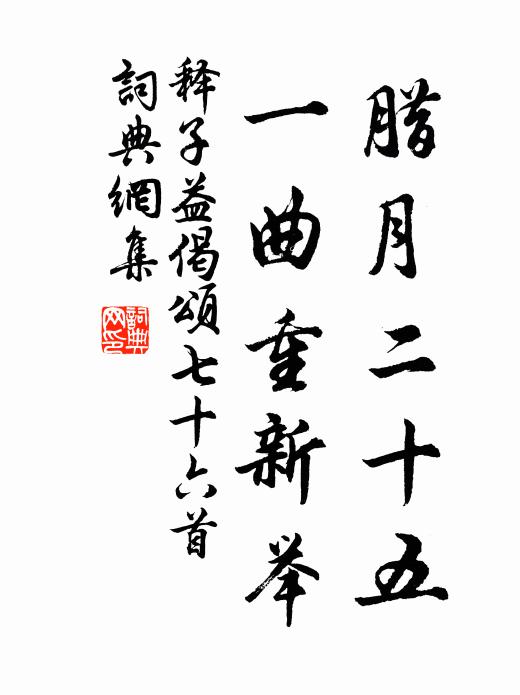 腊月二十五
一曲重新举
释子益偈颂七十六首
詞典網集
詞典网印